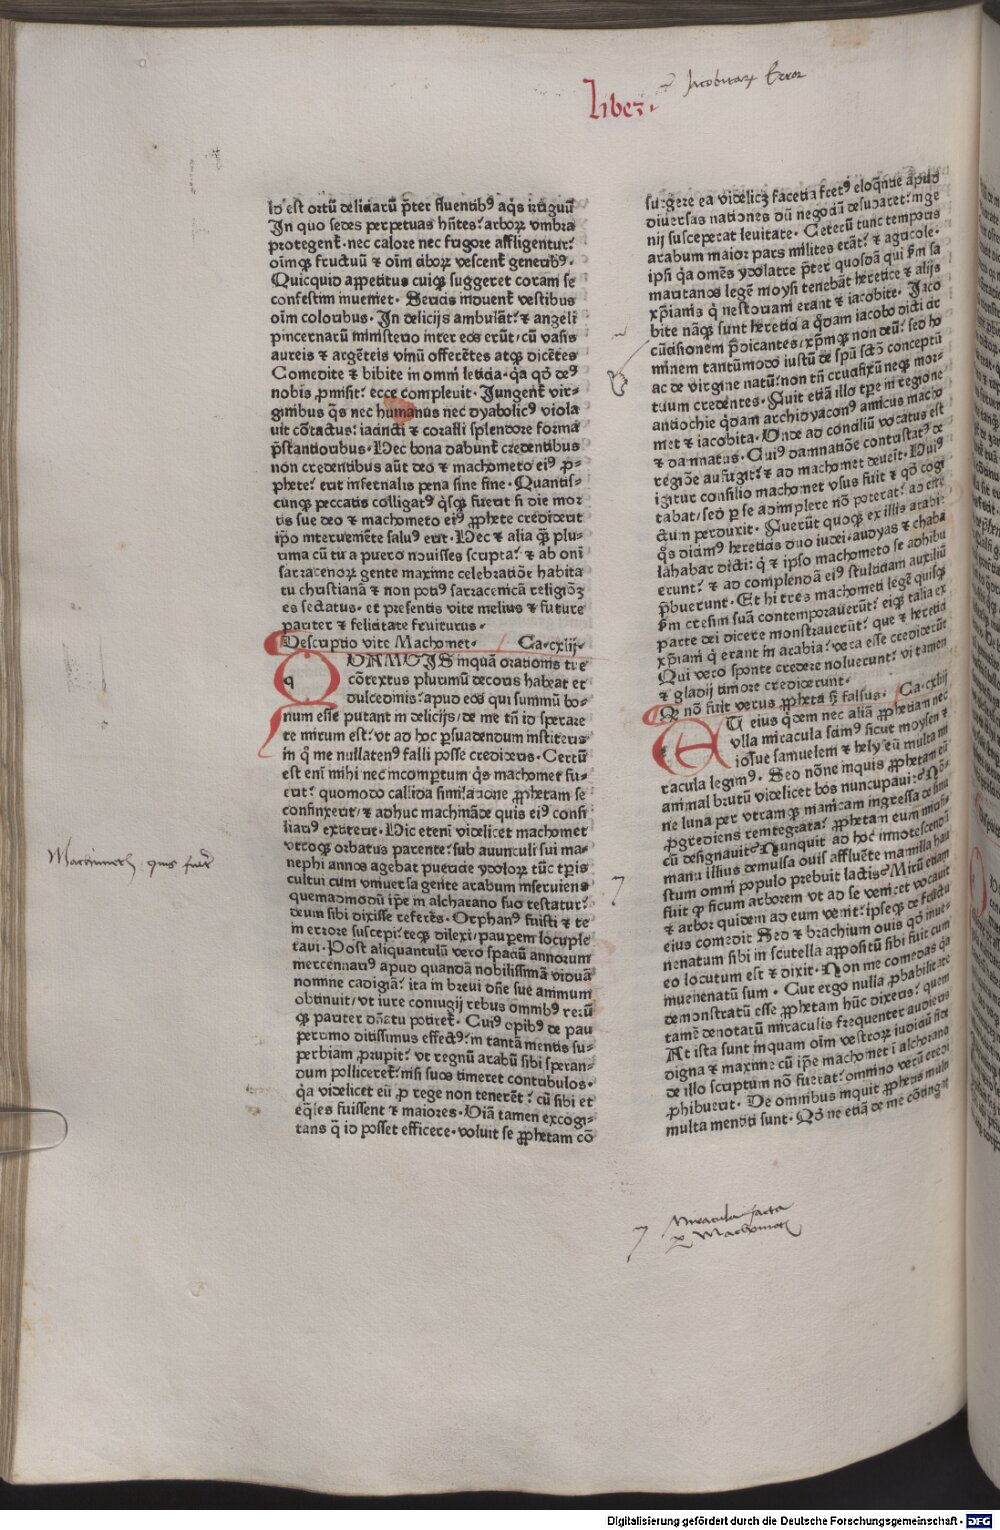 Jacobitarꝝ Error
Liber·
id est ortū deliciarū p̄ter fluentibꝰ aq̄s irriguū
In quo sedes perpetuas hn̄tes: arborꝝ vmbra
protegent᷑· nec calore nec frigore affligentur:
oīmqꝫ fructuū ⁊ oīm ciborꝝ vescent᷑ generibꝰ·
Quicquid appetitus cuiqꝫ suggeret coram se
confestim inueniet· Sericis induent᷑ vestibus
oīm coloribus· In delicijs ambulāt: ⁊ angeli
pincernarū ministerio inter eos erūt/ cū vasis
aureis ⁊ argēteis vinū offerētes atqꝫ dicētes
Comedite ⁊ bibite in omni leticia· q̄a qd̄ deꝰ
nobis ꝓmisit: ecce compleuit· Jungent᷑ vir-
ginibus q̄s nec humanus nec dyabolicꝰ viola
uit cōtactus: iacincti ⁊ coralli splendore forma
p̄stantioribus· Hec bona dabunt᷑ credentibus
non credentibus aūt deo ⁊ machometo eiꝰ ꝓ-
phete: erit infernalis pena sine fine· Quantis-
cunqꝫ peccatis colligatꝰ q̄sqꝫ fuerit si die mor
tis sue deo ⁊ machometo eiꝰ ꝓphete crediderit
ip̄o interueniēte saluꝰ erit· Hec ⁊ alia qꝫ plu-
rima cū tu a puero nouisses scripta: ⁊ ab oni
sarracenorꝝ gente maxime celebratiōe habita
tu christianā ⁊ non potiꝰ sarracenicā religiōꝫ
es sectatus· et presentis vite melius ⁊ future
pariter ⁊ felicitate fruiturus·
Descriptio vite Machomet· Ca·cxliij·
QVAMVIS inquā orationis tue
cōtextus plurimū decoris habeat et
dulcedinis: apud eos qui summū bo-
num esse putant in delicijs/ de me tn̄ id sperare
te mirum est: vt ad hoc ꝑsuadendum institeris
in q̄ me nullatenꝰ falli posse credideris· Certū
est eni mihi nec incomꝑtum q̄s machomet fu-
erit: quomodo callida simlacione ꝓphetam se
confinxerit/ ⁊ adhuc machināde quis eiꝰ consi
liariꝰ extiterit· Hic eteni videlicet machomet
vtroqꝫ orbatus parente: sub auunculi sui ma-
nephi annos agebat puericie ydolorꝝ tūc tꝑis
cultui cum vniuersa gente arabum inseruiens
quemadmodū ip̄e in alcharano suo restatur:
deum sibi dixisse referēs· Orphanꝰ fuisti ⁊ te
in errore suscepi: teqꝫ dilexi/ pauꝑem locuple
taui· Post aliquantulū vero spaciū annorum
mercennariꝰ apud quandā nobilissimā viduā
nomine cadigiā: ita in breui dn̄e sue animum
obtinuit/ vt iure coniugij rebus omnibꝰ rerū
qꝫ pariter dn̄atu potiret᷑· Cuiꝰ opibꝰ de pau
perrimo ditissimus effectꝰ: in tantā mentis su-
perbiam ꝓrupit: vt regnū arabū sibi speran-
dum polliceret᷑: nisi suos timeret contribulos·
q̄a videlicet eū ꝓ rege non tenerēt: cū sibi et
eq̄les fuissent ⁊ maiores· Viā tamen excogi-
tans q̄ id posset efficere· voluit se ꝓphetam cō
surgere ea videlicꝫ facetia fretꝰ eloq̄ntie apud
diuersas nationes dū negociū desudaret: inge
nij susceperat leuitate· Ceterū tunc temporis
arabum maior pars milites erāt: ⁊ agricole·
ipsi q̄a omēs ydolatre p̄ter quosdā qui ẜm sa
maritanos legē moysi tenebāt heretice ⁊ alijs
xp̄ianis q̄ nestoriani erant ⁊ iacobite· Jaco
bite nāqꝫ sunt heretici a q̄dam iacobo dicti cir
cūcisionem p̄dicantes/ xp̄mqꝫ non deū: sed ho
minem tantūmodo iustū de spū scō conceptū
ac de virgine natū: non tn̄ crucifixū neqꝫ mor-
tuum credentes· Fuit etiā illo tꝑe in regione
antiochie q̄dam archidyaconꝰ amicus macho
met ⁊ iacobita· Unde ad conciliū vocatus est
⁊ damnatus· Cuiꝰ damnatiōe contristatꝰ de
regiōe aufugit: ⁊ ad machomet deuēit· Huiꝰ
igitur consilio machomet vsus fuit ⁊ qd̄ cogi
tabat/ sed ꝑ se adimplere nō poterat: ad effe
ctum perduxit· Fuerūt quoqꝫ ex illis arabi-
q̄s diximꝰ hereticis duo iudei· audyas ⁊ chaba
lahabar dicti: q̄ ⁊ ipso machometo se adhibu
erunt: ⁊ ad complendā eiꝰ stulticiam auxiliū
p̄buerunt· Et hi tres machometi legē quisqꝫ
ẜm cresim suā contemporauerūt: eiqꝫ talia ex
parte dei dicere monstrauerūt: que ⁊ heretici
xp̄iani q̄ erant in arabia: vera esse crediderūt
Qui vero sponte credere noluerunt: vi tamen
⁊ gladij timore crediderunt·
Qd̄ nō fuit verus ꝓpheta s̄ falsus· Ca·cxliiij
AT eius q̄dem nec aliā ꝓphetiam nec
vlla miracula scimꝰ sicut moysen ⁊
iosue samuelem ⁊ hely eū multa mi
racula legimꝰ· Sed nōne inquis ꝓphetam eū
animal brutū videlicet bos nuncupauit: Nō-
ne luna per vtramqꝫ manicam ingressa de sinu
ꝓgrediens reintegrata: ꝓphetam eum
cū designauit: Nunquit ad hoc innotescendū
manu illius demulsa ouis affluēte mamilla hau
stum omni populo prebuit lactis: Mirū etiam
fuit qꝫ ficum arborem vt ad se veniret vocauit
⁊ arbor quidem ad eum venit: ipseqꝫ de fructu
eius comedit Sed ⁊ brachium ouis qd̄ inue-
nenatum sibi in scutella appositū sibi fuit cum
eo locutum est ⁊ dixit· Non me comedas q̄a
inuenenatū sum· Cur ergo nulla ꝓbabilitate
demonstratū esse ꝓphetam hūc dixeris: quem
tamē denotatū miraculis frequenter audieris
At ista sunt inquam oīm vestrorꝝ iudiciū fide
digna ⁊ maxime cū ip̄e machomet i alchorano
de illo scriptum nō fuerat: omnino verū credi
ꝓhibuerit· De omnibus inquit ꝓphetis multi
multa mentiti sunt· Qd̄ ne etiā de me cōtingat
Machometh quis fuerit
Miracula facta
ꝑ Machometh